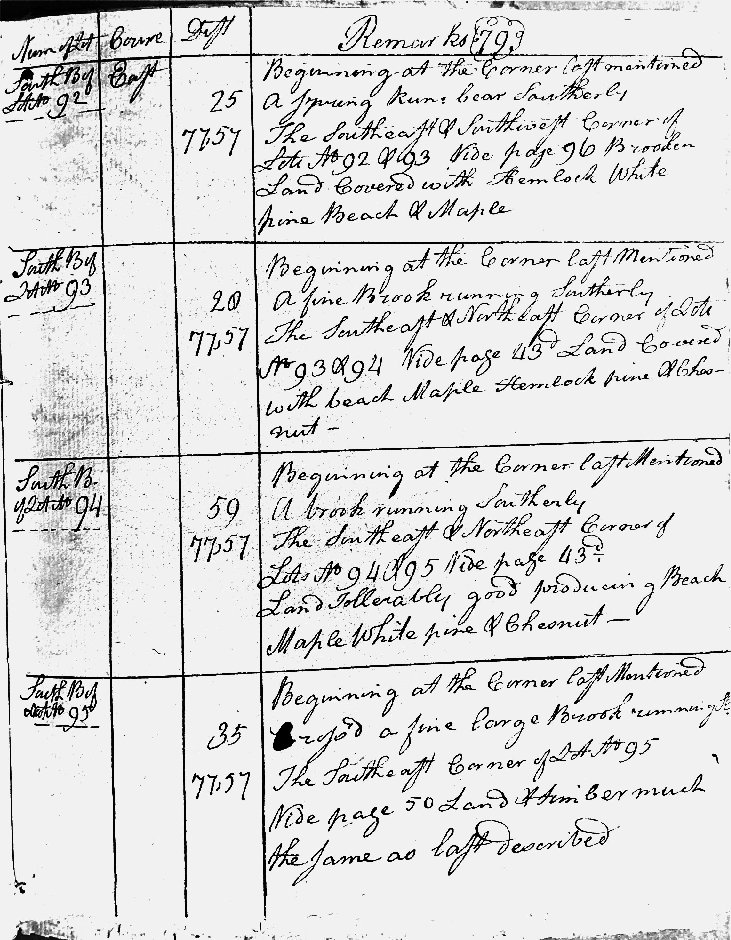 Num of Lot Course Dist Remarks 1793
South B of East Beginning at the Corner last mentioned
Lot No 92 25 A Spring Runs bear Southerly
77,57 The Southeast & Southwest Corner of
Lots No 92 & 93 Vide page 96 Brooken
Land Covered with Hemlock White
pine Beach & Maple
South B of Beginning at the Corner last Mentioned
Lot No 93 20 A fine Brook running Southerly
77,57 The Southeast & Northeast Corner of Lots
No 93 & 94 Vide page 43d Land Covered
with beach Maple Hemlock pine & Ches-
nut -
South B- Beginning at the Corner last Mentioned
of Lot No 94 59 A brook running Southerly
77,57 The Southeast & Northeast Corner of
Lots No 94 & 95 Vide page 43d.
Land Tollerably good producing Beach
Maple White pine & Chesnut -
South B of Beginning at the Corner last Mentioned
Lot No 95 35 Cross'd a fine large Brook running
77,57 The Southeast Corner of Lot No 95
Vide page 50 Land & timber much
the same as last described